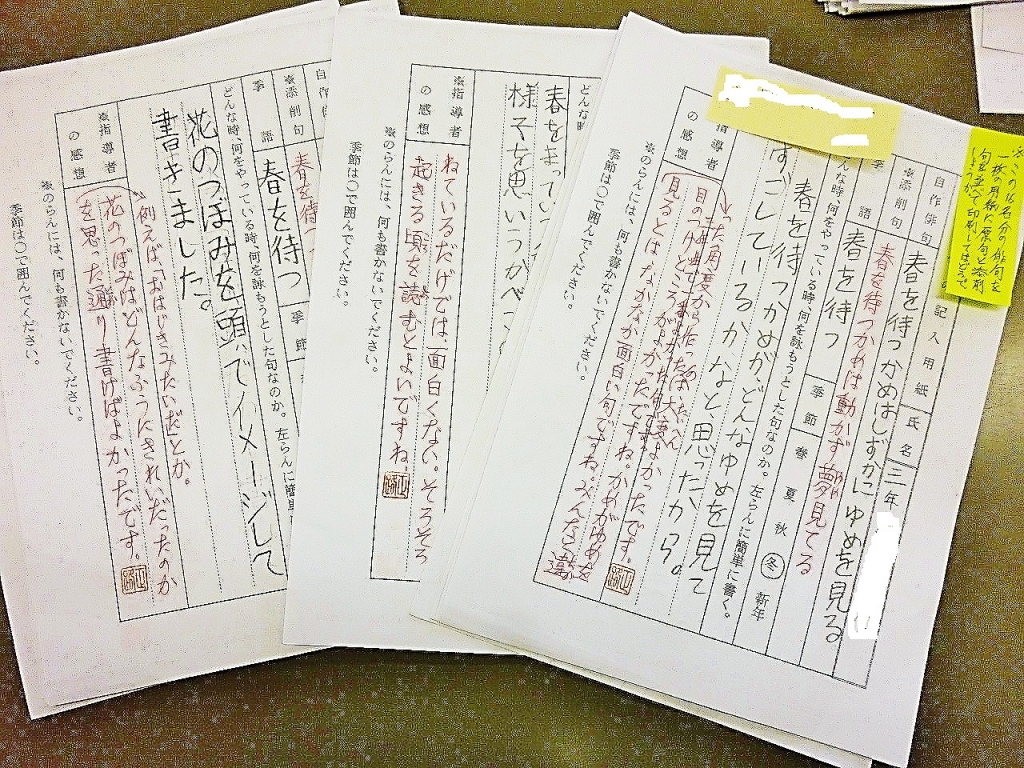 ※この16名分の俳句を
一枚の用紙に原句と添削
句を並べて印刷してはどうで
しょうか。
記入用紙
氏名
三年
自作俳句
春を待つかめはしずかにゆめを見る
※添削句
春を待つかめは動かず夢見てる
季語
春を待つ
季節
春
夏
秋
冬
新年
どんな時、何をやっている時、何を詠もうとした句なのか。左らんに簡単に書く。
春を待つかめが、どんなゆめを見て
すごしているかなと思ったから。
指導者
の感想
見るとはなかなか面白い句ですね。
※のらんには、何も書かないでください。
季節は○で囲んでください。
春をまってい
様子を思いうかべ
※指導者
の感想
ねているだけでは、面白くない。そろそろ
起きる頃を読むとよいですね。
※のらんには、何も書かないでください。
季節は○で囲んでください。
自作俳
※添削句
春を待つ
季語
春を待つ
季節
どんな時、何をやっている時、何を詠もうとした句なのか。左らんに簡単
花のつぼみを頭でイメージして
書きました。
※指導者
の感想
例えば、「おはじきみたいだとか。
花のつぼみはどんなふうにきれいだったのか
を思った通り書けばよかったです。
※のらんには、何も書かないでください。
季節は○で囲んでください。